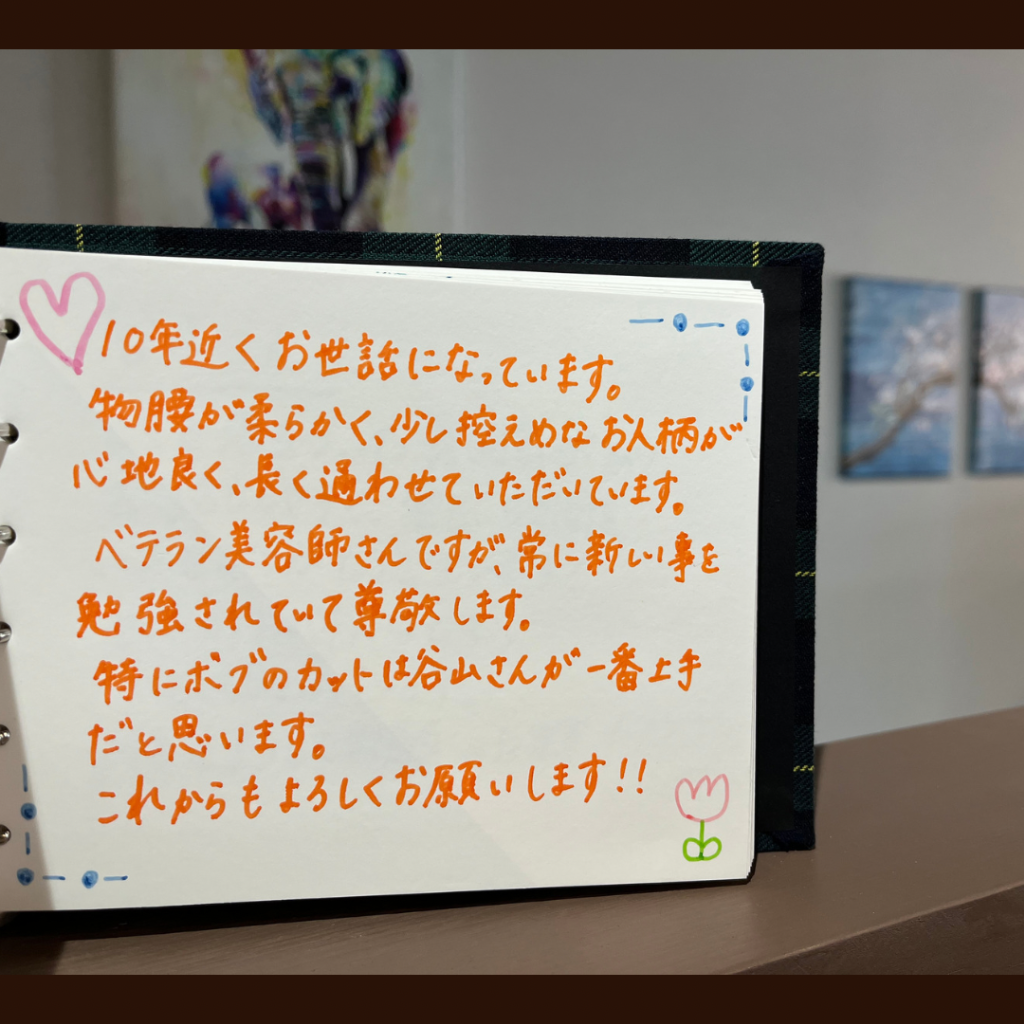 10年近くお世話になっています。
物腰が柔らかく、少し控えめなお人柄が
心地良く、長く通わせていただいています。
ベテラン美容師さんですが、常に新しい事を
勉強されていて尊敬します。
特にボブのカットは谷山さんが一番上手
だと思います。
これからもよろしくお願いします!!